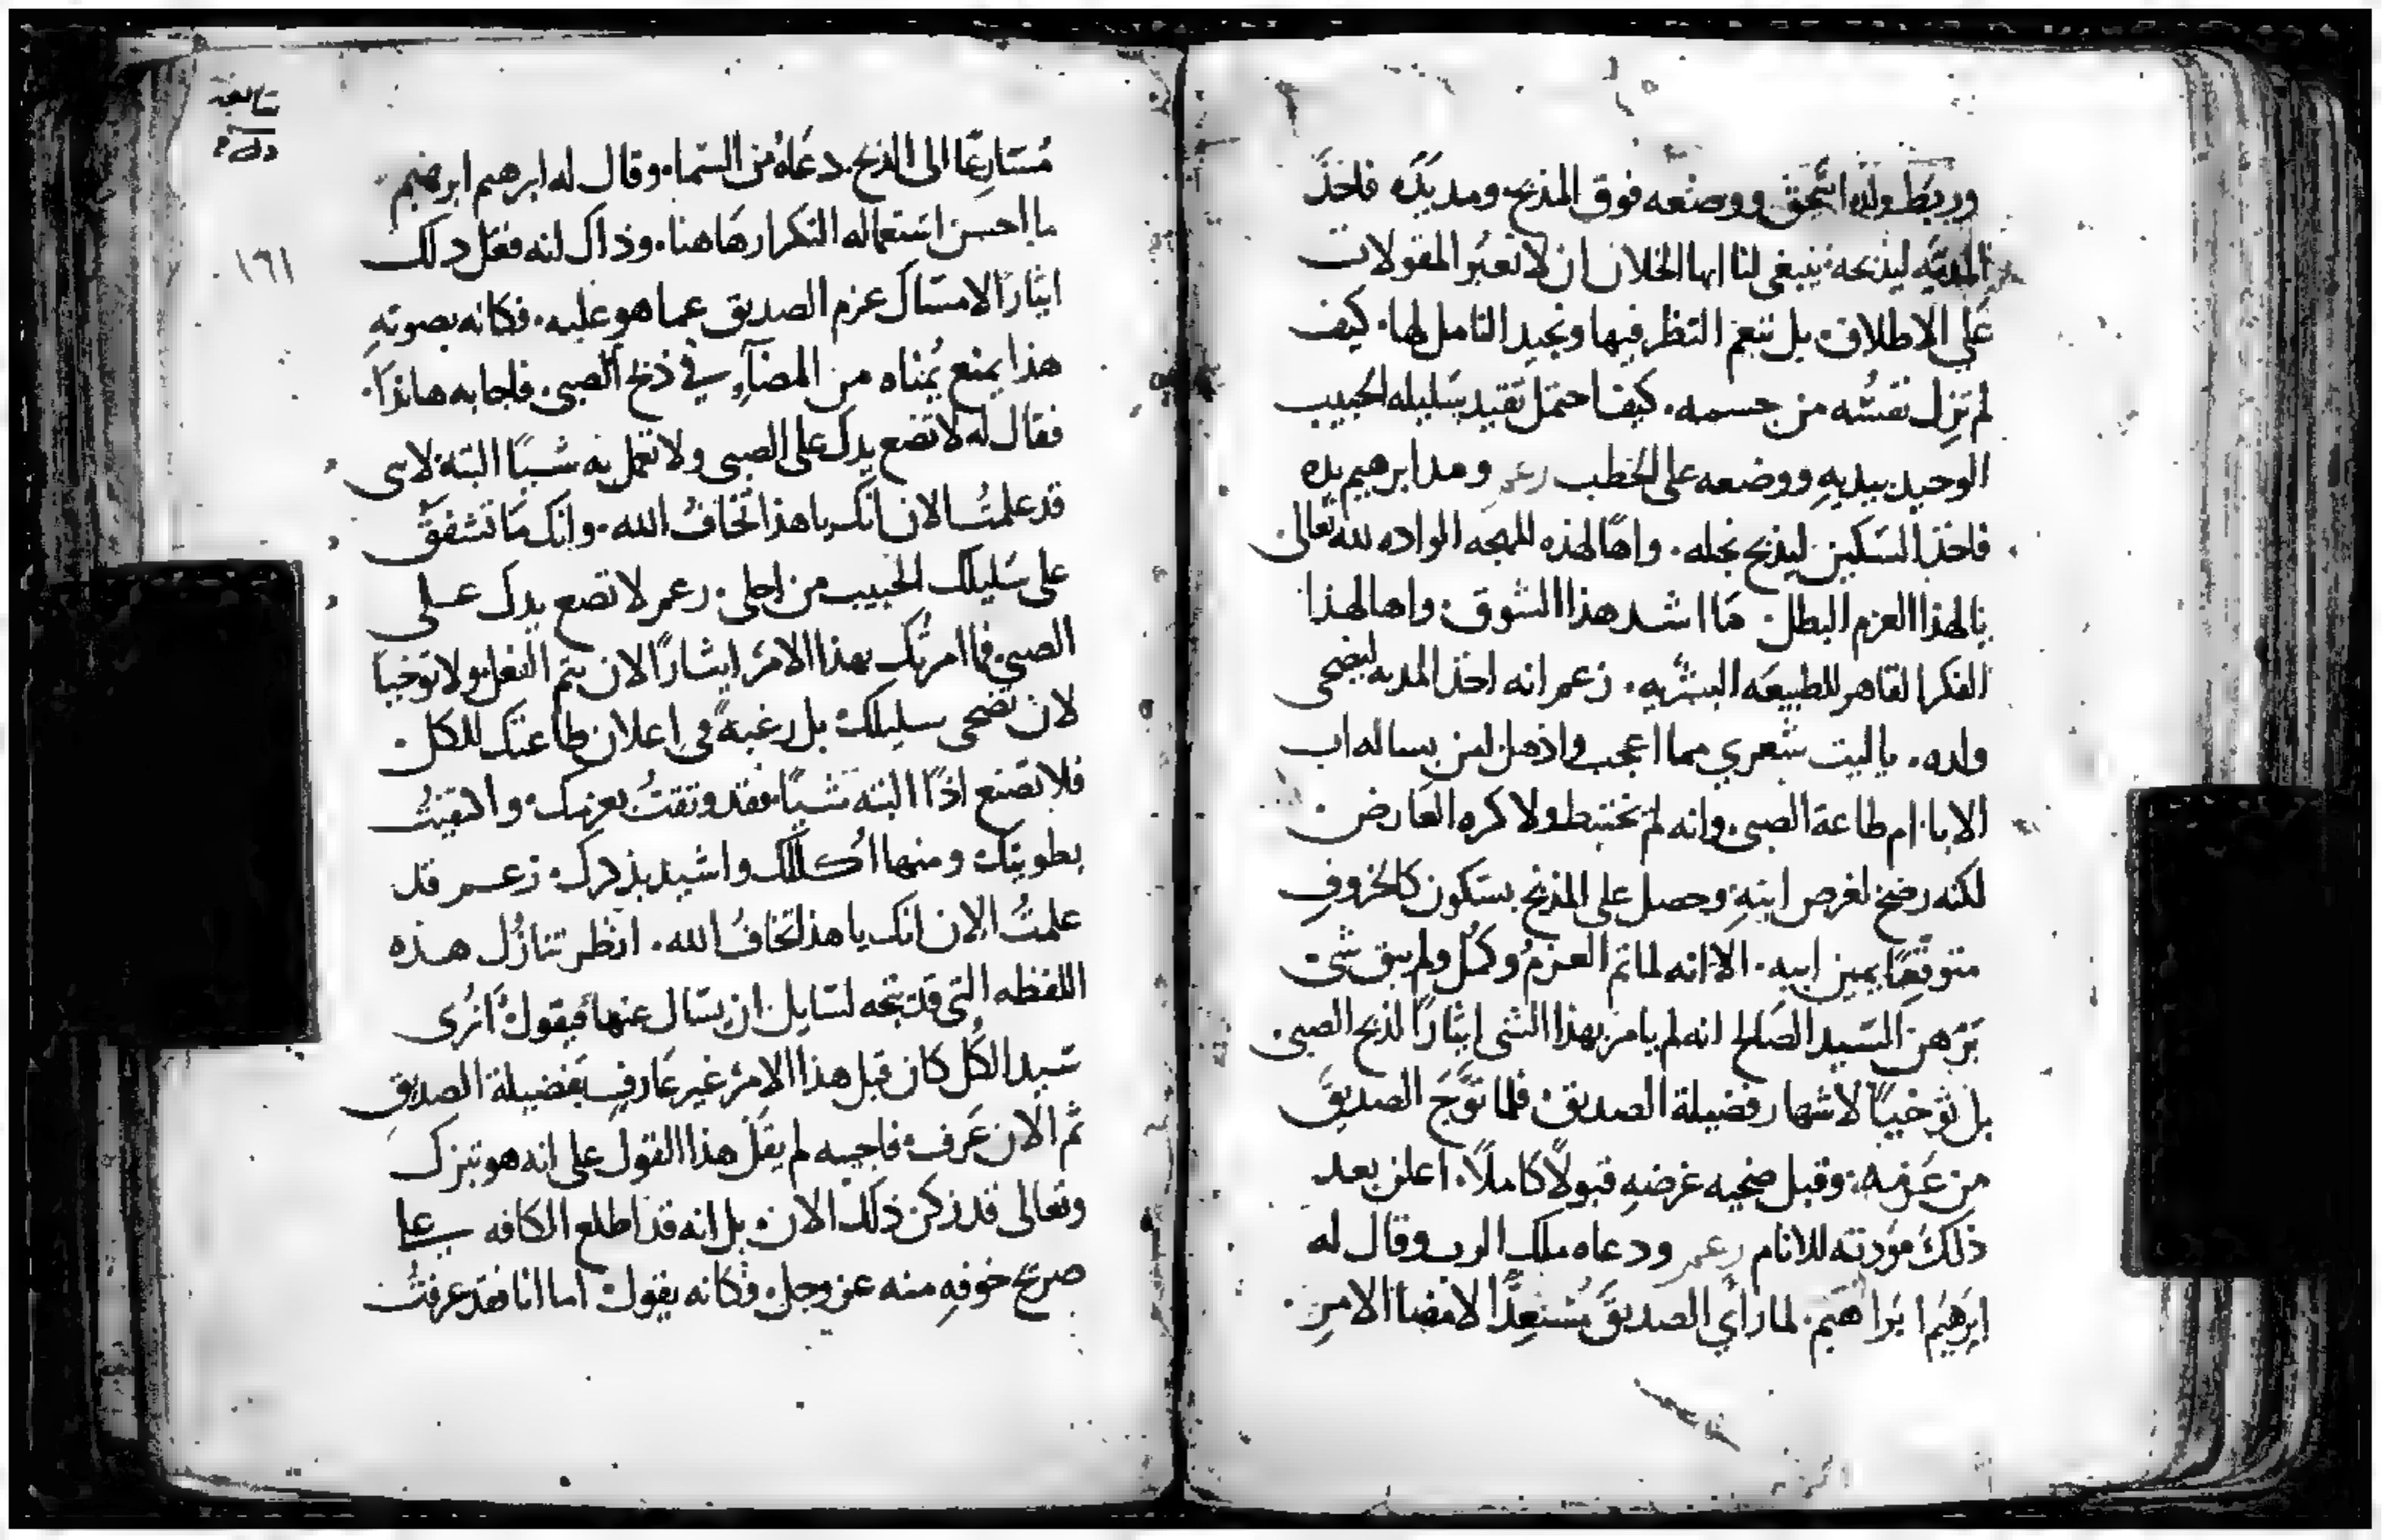 وربط ولده اسحق ووضعه فوق المذبح ومد يده فاخذ
المديه ليذبحه ينبغي لنا ايها الخلان ان لا نعبر المقولات
على الاطلاق بل ننعم النظر فيها ونجيد التامل لها. كيف
لم تزل نفسه من جسمه. كيف احتمل تقيد سليله الحبيب
الوحيد بيديه ووضعه على الحطب زعم ومد ابرهيم يده
فاخذ السكين ليذبح نجله. واها لهذه المهجه الواده لله تعالى
يا لهذا العزم البطل ما اشد هذا الشوق واها لهذا
الفكر القاهر للطبيعه البشريه. زعم انه اخذ المديه ليضحي
ولده. يا ليت شعري مما اعجب واذهل امن بساله اب
الابا. ام طاعة الصبي وانه لم يختبط ولا كره العارض
لكنه رضخ لغرض ابيه وحصل على المذبح بسكون كالخروف
متوقعًا يمين ابيه. الا انه لما تم العزم وكمل ولم يبق شي
برهن السيد الصالح انه لم يامر بهذا الشي ايثارًا لذبح الصبي.
بل توخيًا لاشهار فضيلة الصديق فلما توج الصديق
من عزمه وقبل ضحيه غرضه قبولًا كاملًا. اعلن بعد
ذلك مودته للانام زعم ودعاه ملك الرب وقال له
ابرهيم ابراهيم. لما راي الصديق مُستعدًا لامضا الامر
تابعة
مُسارعًا الى الذبح. دعاه من السما. وقال له ابرهيم ابرهيم
ما احسن استعماله التكرار هاهنا. وذاك انه فعل ذلك
ايثارًا لامساك عزم الصديق عما هو عليه. فكانه بصوته
هذا يمنع يُمناه من المضآء في ذبح الصبي. فاجابه هانذا.
فقال له لا تضع يدك على الصبي ولا تعمل به شيئًا البته لاني
قد علمتُ الان انك يا هذا تخافُ الله. وانك ما تشفق
على سليلك الحبيب من اجلي. زعم لا تضع يدك على
الصبي فما امرتك بهذا الامر ايثارًا لان يتم الفعل ولا توخيًا
لان تضحي سليلك بل رغبةً في اعلان طاعتك للكل.
فلا تصنع اذًا البته شيًا. فقد وثقتُ بعزمك والتقيتُ
بطويتك ومنها اُكللك واشيد بذكرك. زعم قد
علمتُ الان انك يا هذا تخافُ الله. انظر تنازُل هذه
اللفظه التي قد يتجه لسايل ان يسال عنها فيقول اَتُرى
سيد الكُل كان قبل هذا الامر غير عارفٍ بفضيلة الصديق
ثم الان عَرف. فاجيبه لم يقل هذا القول على انه هو تبرك
وتعالى قد زكن ذلك الان. بل انه قد اطلع الكافه على
صريح خوفه منه عز وجل. فكانه يقول اما انا فقد عرفتُ
١٦١